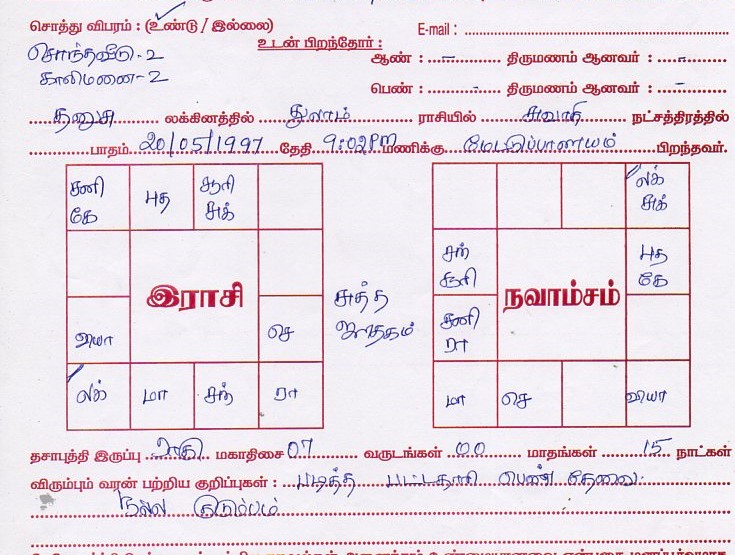 சொத்து விபரம் : (உண்டு / இல்லை) E-mail :
சொந்தவீடு-2 உடன் பிறந்தோர் :
ஆண் : - திருமணம் ஆனவர் : -
காலிமனை-2
பெண் : - திருமணம் ஆனவர் : -
தனுசு லக்கினத்தில் துலாம் ராசியில் சுவாதி நட்சத்திரத்தில்
பாதம் 20/05/1997 தேதி 9:02PM மணிக்கு மேட்டுப்பாளையம் பிறந்தவர்.
சனி கே புத சூரி சுக் லக் சுக்
சந் சூரி புத கே
இராசி சுத்த ஜாதகம் நவாம்சம்
வியா செ சனி ரா
லக் மா சந் ரா மா செ வியா
தசாபுத்தி இருப்பு ராகு மகாதிசை 07 வருடங்கள் 00 மாதங்கள் 15 நாட்கள்
விரும்பும் வரன் பற்றிய குறிப்புகள் : படித்த பட்டதாரி பெண் தேவை
நல்ல குடும்பம்